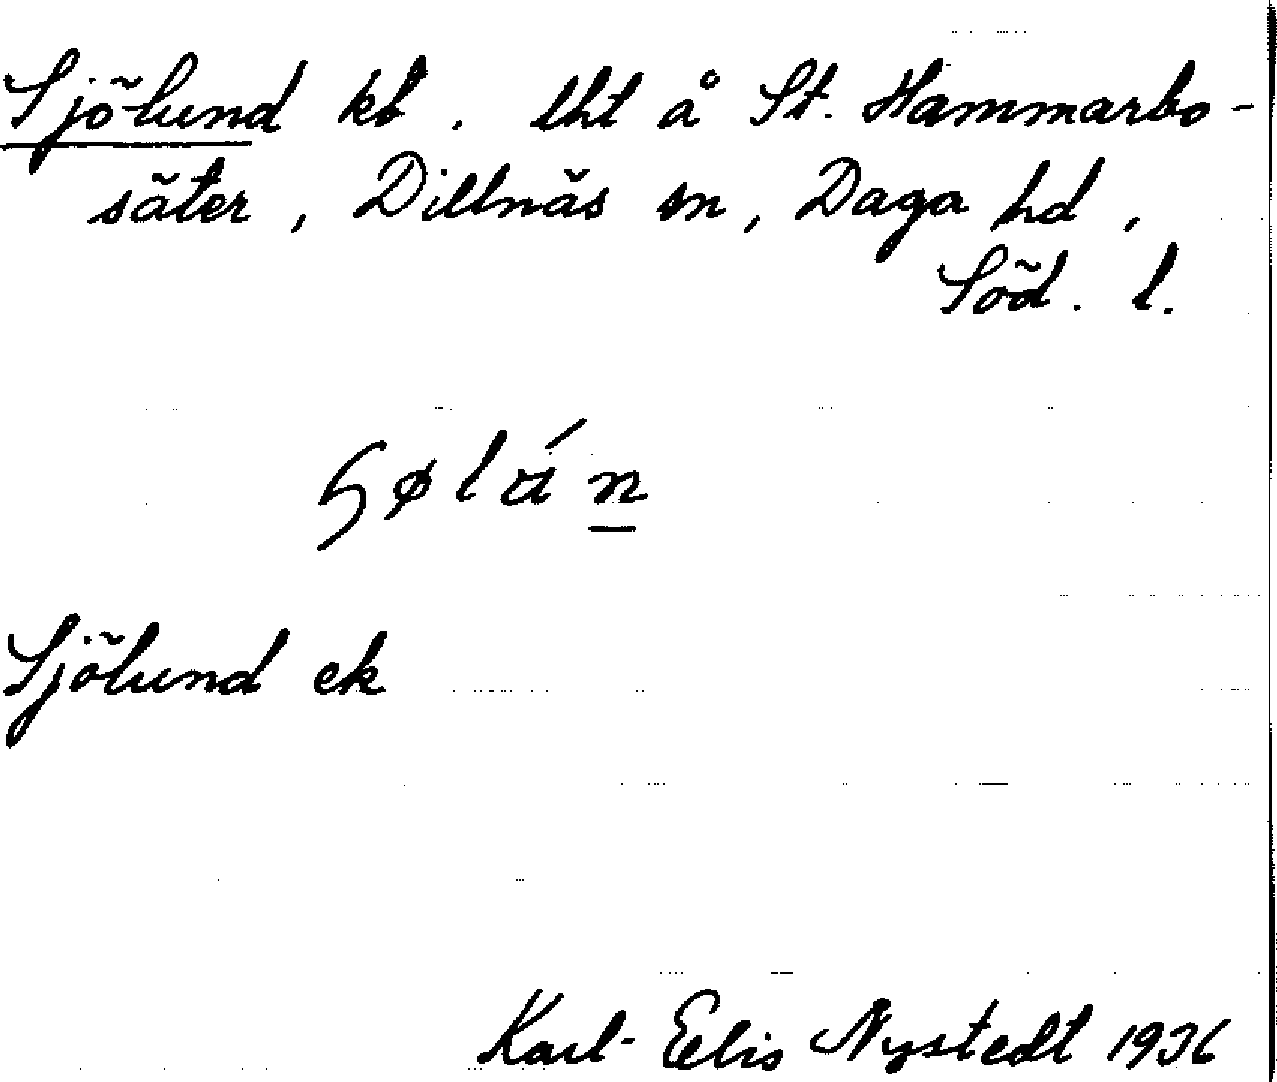 Sjölund kt. lht å St. Hammarbo-
säter, Dillnäs sn, Daga hd,
Söd. l.
Sjölund ek
Karl-Elis Nystedt 1936